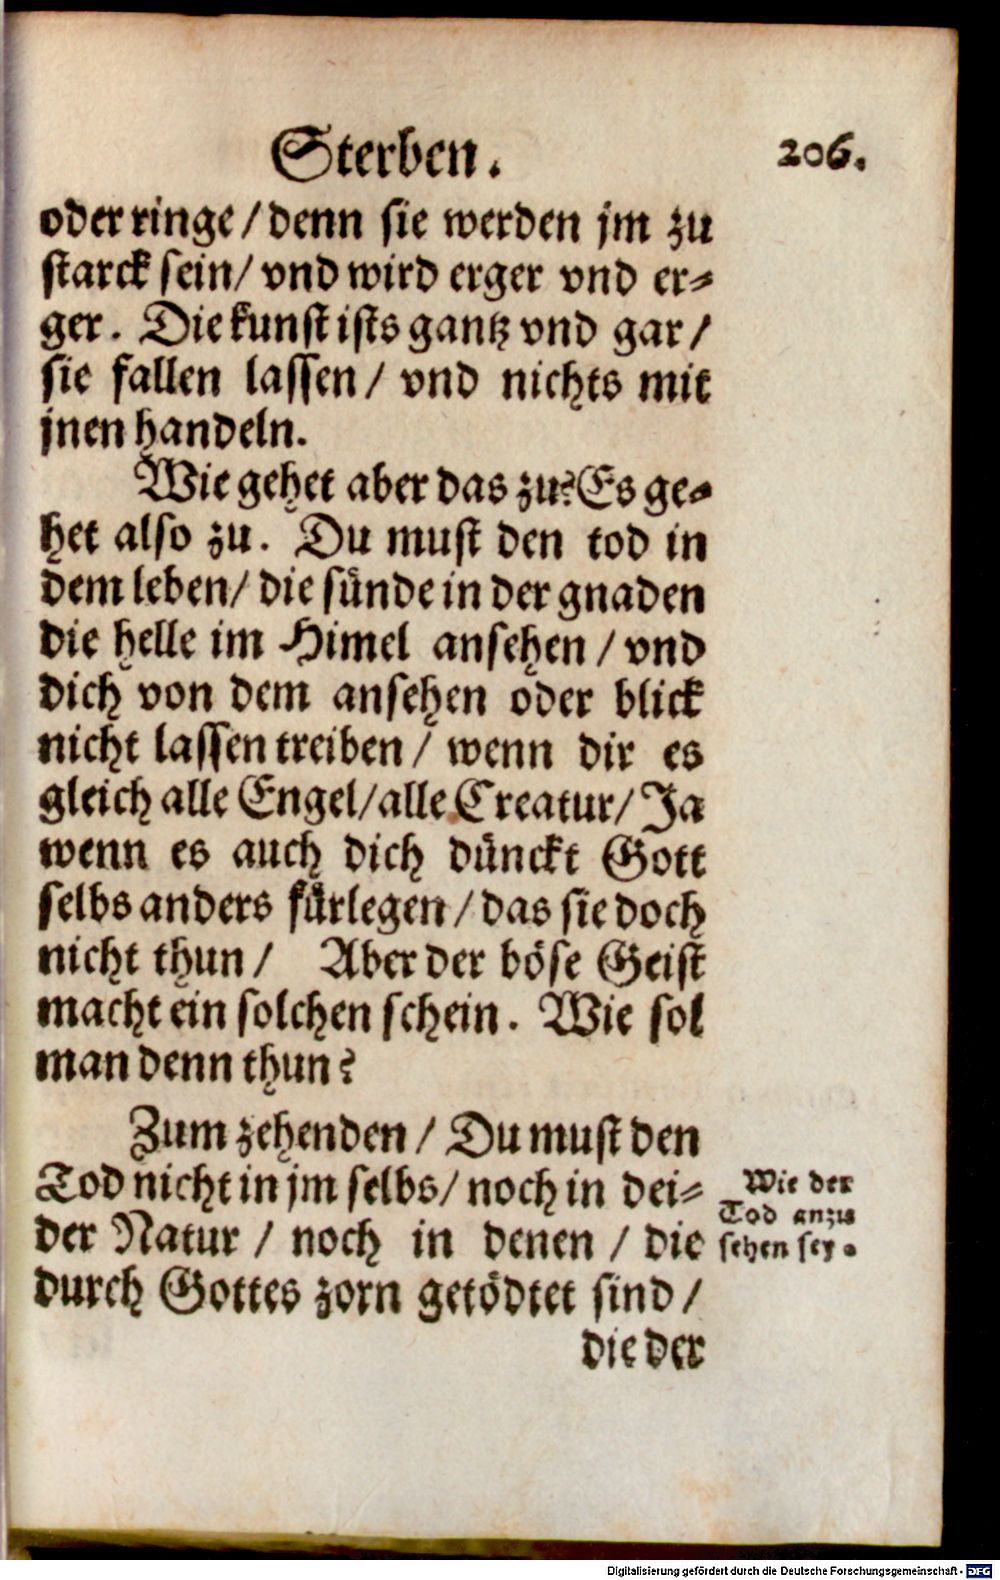 Sterben. 206.
oder ringe / denn sie werden jm zu
starck sein / vnd wird erger vnd er⸗
ger. Die kunst ists gantz vnd gar /
sie fallen lassen / vnd nichts mit
jnen handeln.
Wie gehet aber das zu? Es ge⸗
het also zu. Du must den tod in
dem leben / die sünde in der gnaden
die helle im Himel ansehen / vnd
dich von dem ansehen oder blick
nicht lassen treiben / wenn dir es
gleich alle Engel / alle Creatur / Ja
wenn es auch dich dünckt Gott
selbs anders fürlegen / das sie doch
nicht thun / Aber der böse Geist
macht ein solchen schein. Wie sol
man denn thun?
Zum zehenden / Du must den
Tod nicht in jm selbs / noch in dei⸗
der Natur / noch in denen / die
durch Gottes zorn getödtet sind /
die der
Wie der
Tod anzu
sehen sey.
Digitalisierung gefördert durch die Deutsche Forschungsgemeinschaft - DFG